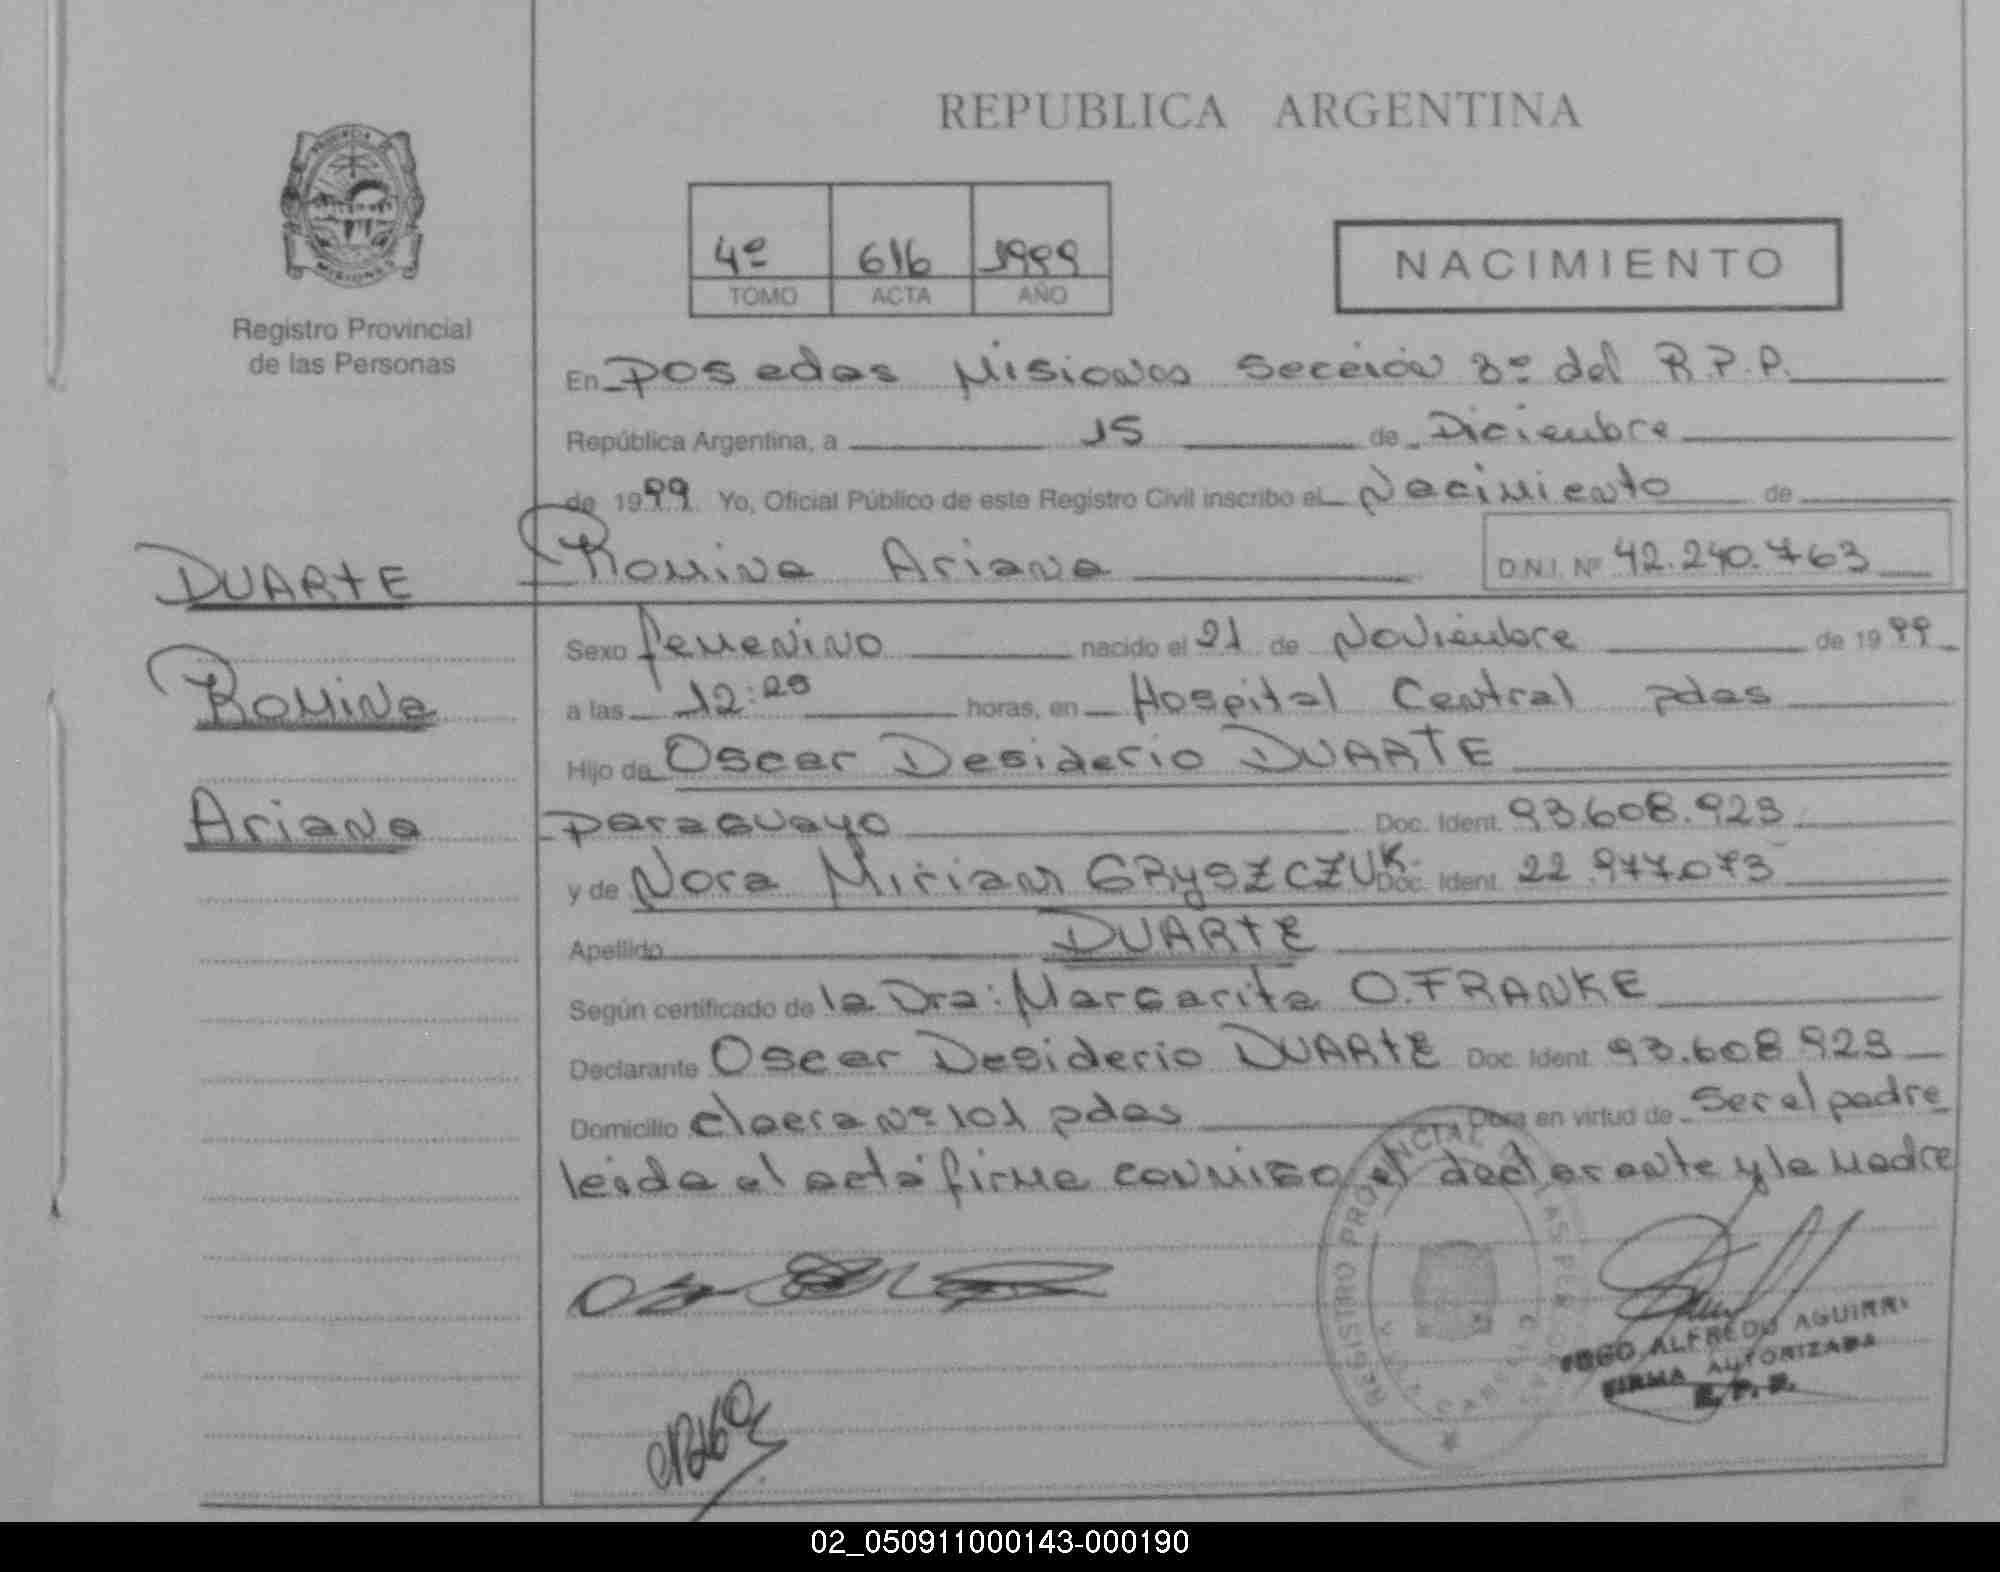 REPUBLICA ARGENTINA
Registro Provincial
de las Personas
4º 616 1999
TOMO ACTA AÑO
NACIMIENTO
En Posadas Misiones Sección 3º del R.P.P.
República Argentina, a 15 de Diciembre
de 1999. Yo, Oficial Público de este Registro Civil inscribo el Nacimiento de
Romina Ariana D.N.I. Nº 42.240.763
DUARTE
Romina
Ariana
Sexo femenino nacido el 21 de Noviembre de 1999
a las 12:25 horas, en Hospital Central pdas
Hijo de Oscar Desiderio DUARTE
paraguayo Doc. Ident. 93.608.923
y de Nora Miriam GRYSZCZUK Doc. Ident. 22.977.073
Apellido DUARTE
Según certificado de la Dra: Margarita O. FRANKE
Declarante Oscar Desiderio DUARTE Doc. Ident. 93.608.923
Domicilio nº 101 pdas Obra en virtud de Ser el padre
leida el acta firma conmigo el declarante y la madre
REGISTRO PROVINCIAL DE LAS PERSONAS
ALFREDO AGUIRRE
FIRMA AUTORIZADA
R.P.P.
02_050911000143-000190